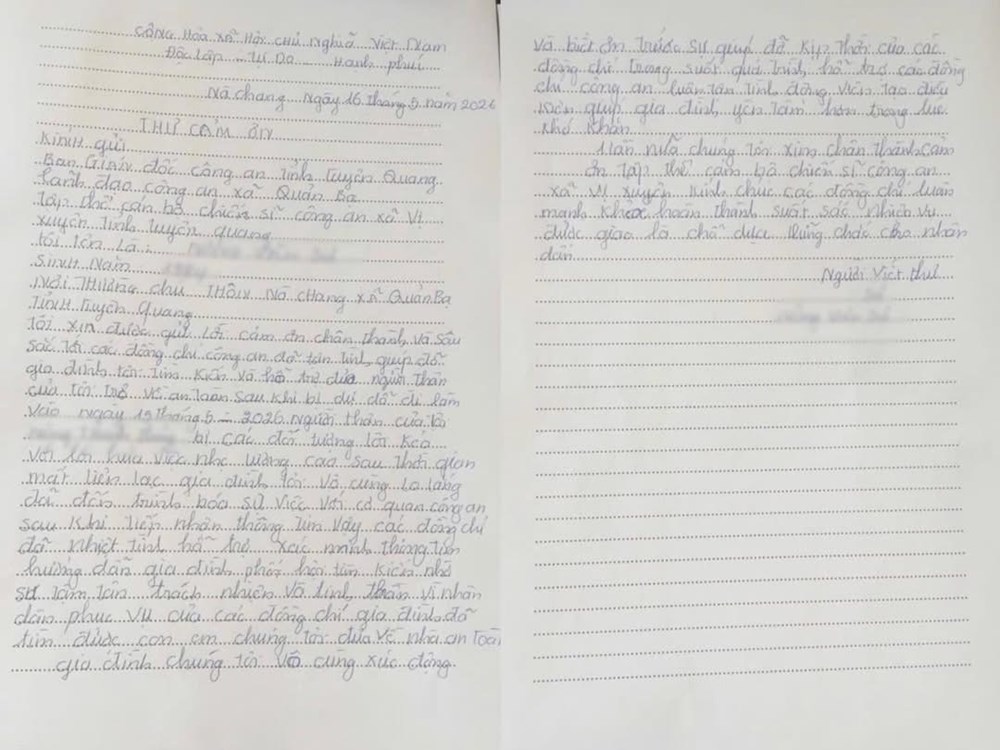 Cộng Hòa xã Hội chủ nghĩa Việt Nam
Độc lập - Tự Do - Hạnh phúc
Nà chang Ngày 16 tháng 5 năm 2026
THƯ CẢM ƠN
Kính gửi
Ban Giám đốc công an tỉnh Tuyên Quang
Lãnh đạo công an xã Quản Bạ
Tập thể cán bộ chiến sĩ công an xã Vị
Xuyên, tỉnh tuyên quang
Tôi tên Là:
Sinh Năm
Nơi THường chú THôn Nà chang xã Quản Bạ
Tỉnh Tuyên Quang
Tôi xin được gửi lời cảm ơn chân thành và sâu
sắc tới các đồng chí công an đã tận tình giúp đỡ
gia đình tôi tìm kiếm và hỗ trợ đưa người thân
của tôi trở về an toàn sau khi bị dụ dỗ đi làm
Vào ngày 15 tháng 5 - 2026 người thân của tôi
bị các đối tượng lôi kéo
với lời hứa việc nhẹ lương cao sau thời gian
mất liên lạc gia đình tôi vô cùng lo lắng
đã đến trình báo sự việc với cơ quan công an
sau khi tiếp nhận thông tin vậy các đồng chí
đã nhiệt tình hỗ trợ xác minh thông tin
hướng dẫn gia đình phối hợp tìm kiếm nhờ
sự tận tâm trách nhiệm và tinh thần vì nhân
dân phục vụ của các đồng chí gia đình đã
tìm được con em chúng tôi đưa về nhà an toàn
gia đình chúng tôi vô cùng xúc động
và biết ơn trước sự giúp đỡ kịp thời của các
đồng chí trong suốt quá trình hỗ trợ các đồng
chí công an luôn tận tình động viên tạo điều
kiện giúp gia đình yên tâm hơn trong lúc
khó khăn
1 lần nữa chúng tôi xin chân thành cảm
ơn tập thể cán bộ chiến sĩ công an
xã vị xuyên kính chúc các đồng chí luôn
mạnh khỏe hoàn thành suất sắc nhiệm vụ
được giao là chỗ dựa vững chắc cho nhân
dân
Người Viết thư